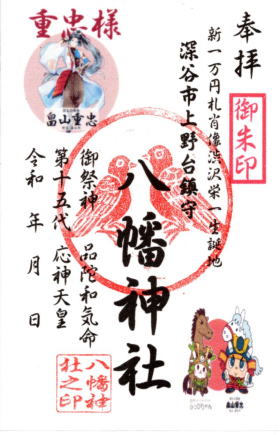 奉拝
御朱印
新一万円札肖像渋沢栄一生誕地
深谷市上野台鎮守
八幡神社
御祭神 品陀和気命
第十五代 応神天皇
令和 年 月 日
重忠様
畠山重忠
八幡神社之印
畠山重忠